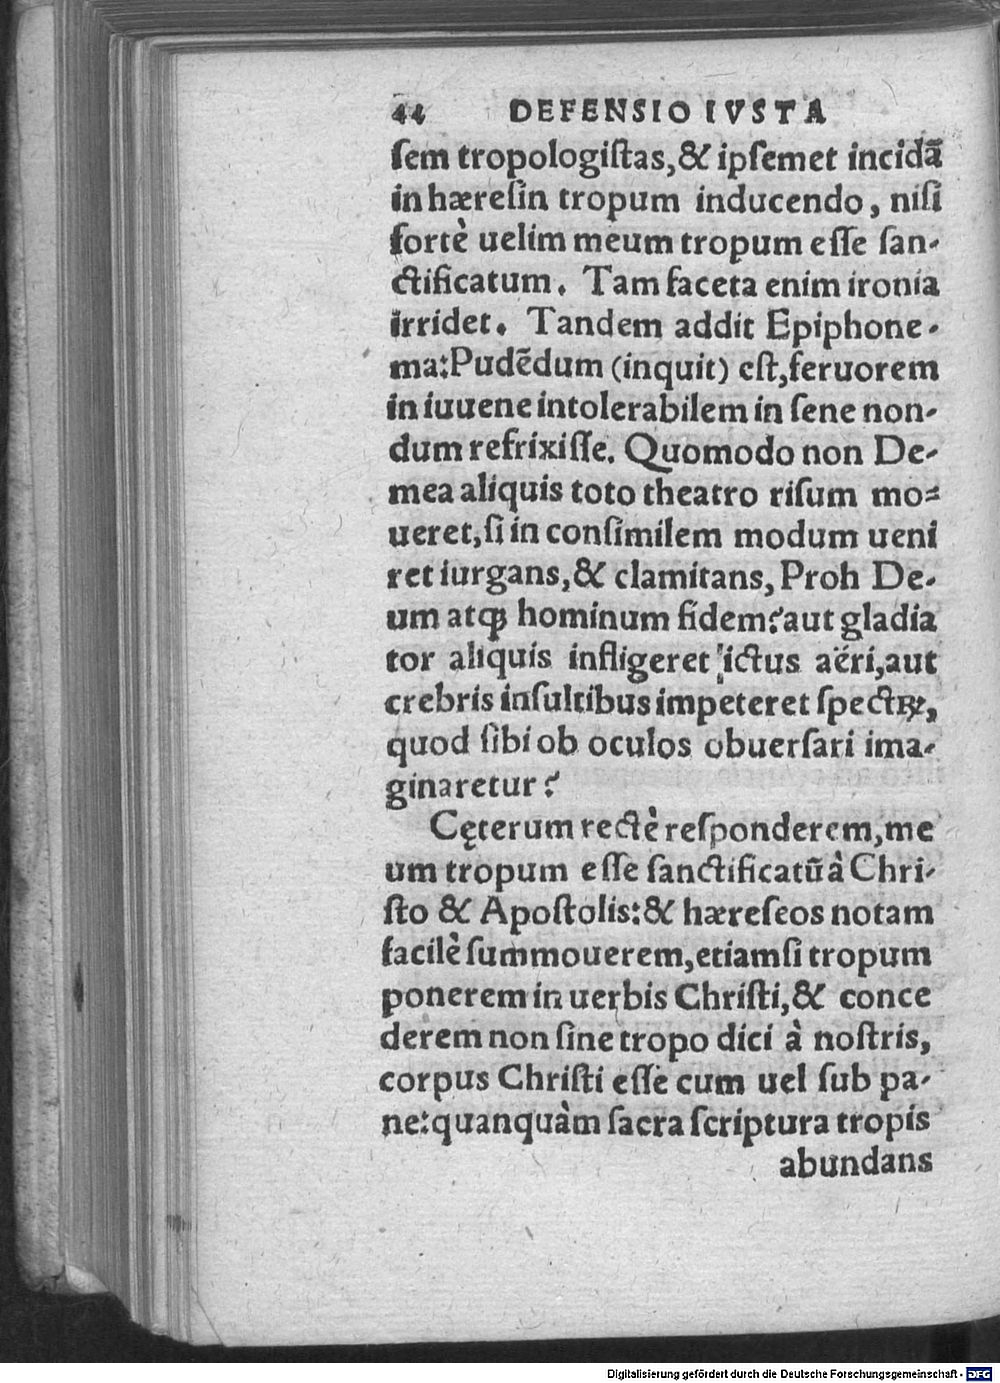 44 DEFENSIO IVSTA
ſem tropologiſtas,& ipſemet incidã
in hæreſin tropum inducendo, niſi
fortè uelim meum tropum eſſe ſan-
ctificatum. Tam faceta enim ironia
irridet. Tandem addit Epiphone-
ma:Pudẽdum (inquit) eſt,feruorem
in iuuene intolerabilem in ſene non-
dum refrixiſſe. Quomodo non De-
mea aliquis toto theatro riſum mo-
ueret,ſi in conſimilem modum ueni
ret iurgans,& clamitans,Proh De-
um atq́ꝫ hominum fidem?aut gladia
tor aliquis infligeret ictus aëri,aut
crebris inſultibus impeteret ſpectrũ,
quod ſibi ob oculos obuerſari ima-
ginaretur?
Cęterum rectè reſponderem,me
um tropum eſſe ſanctificatũ à Chri-
ſto & Apoſtolis:& hæreſeos notam
facilè ſummouerem,etiamſi tropum
ponerem in uerbis Chriſti,& conce
derem non ſine tropo dici à noſtris,
corpus Chriſti eſſe cum uel ſub pa-
ne:quanquàm ſacra ſcriptura tropis
abundans
Digitalisierung gefördert durch die Deutsche Forschungsgemeinschaft - DFG